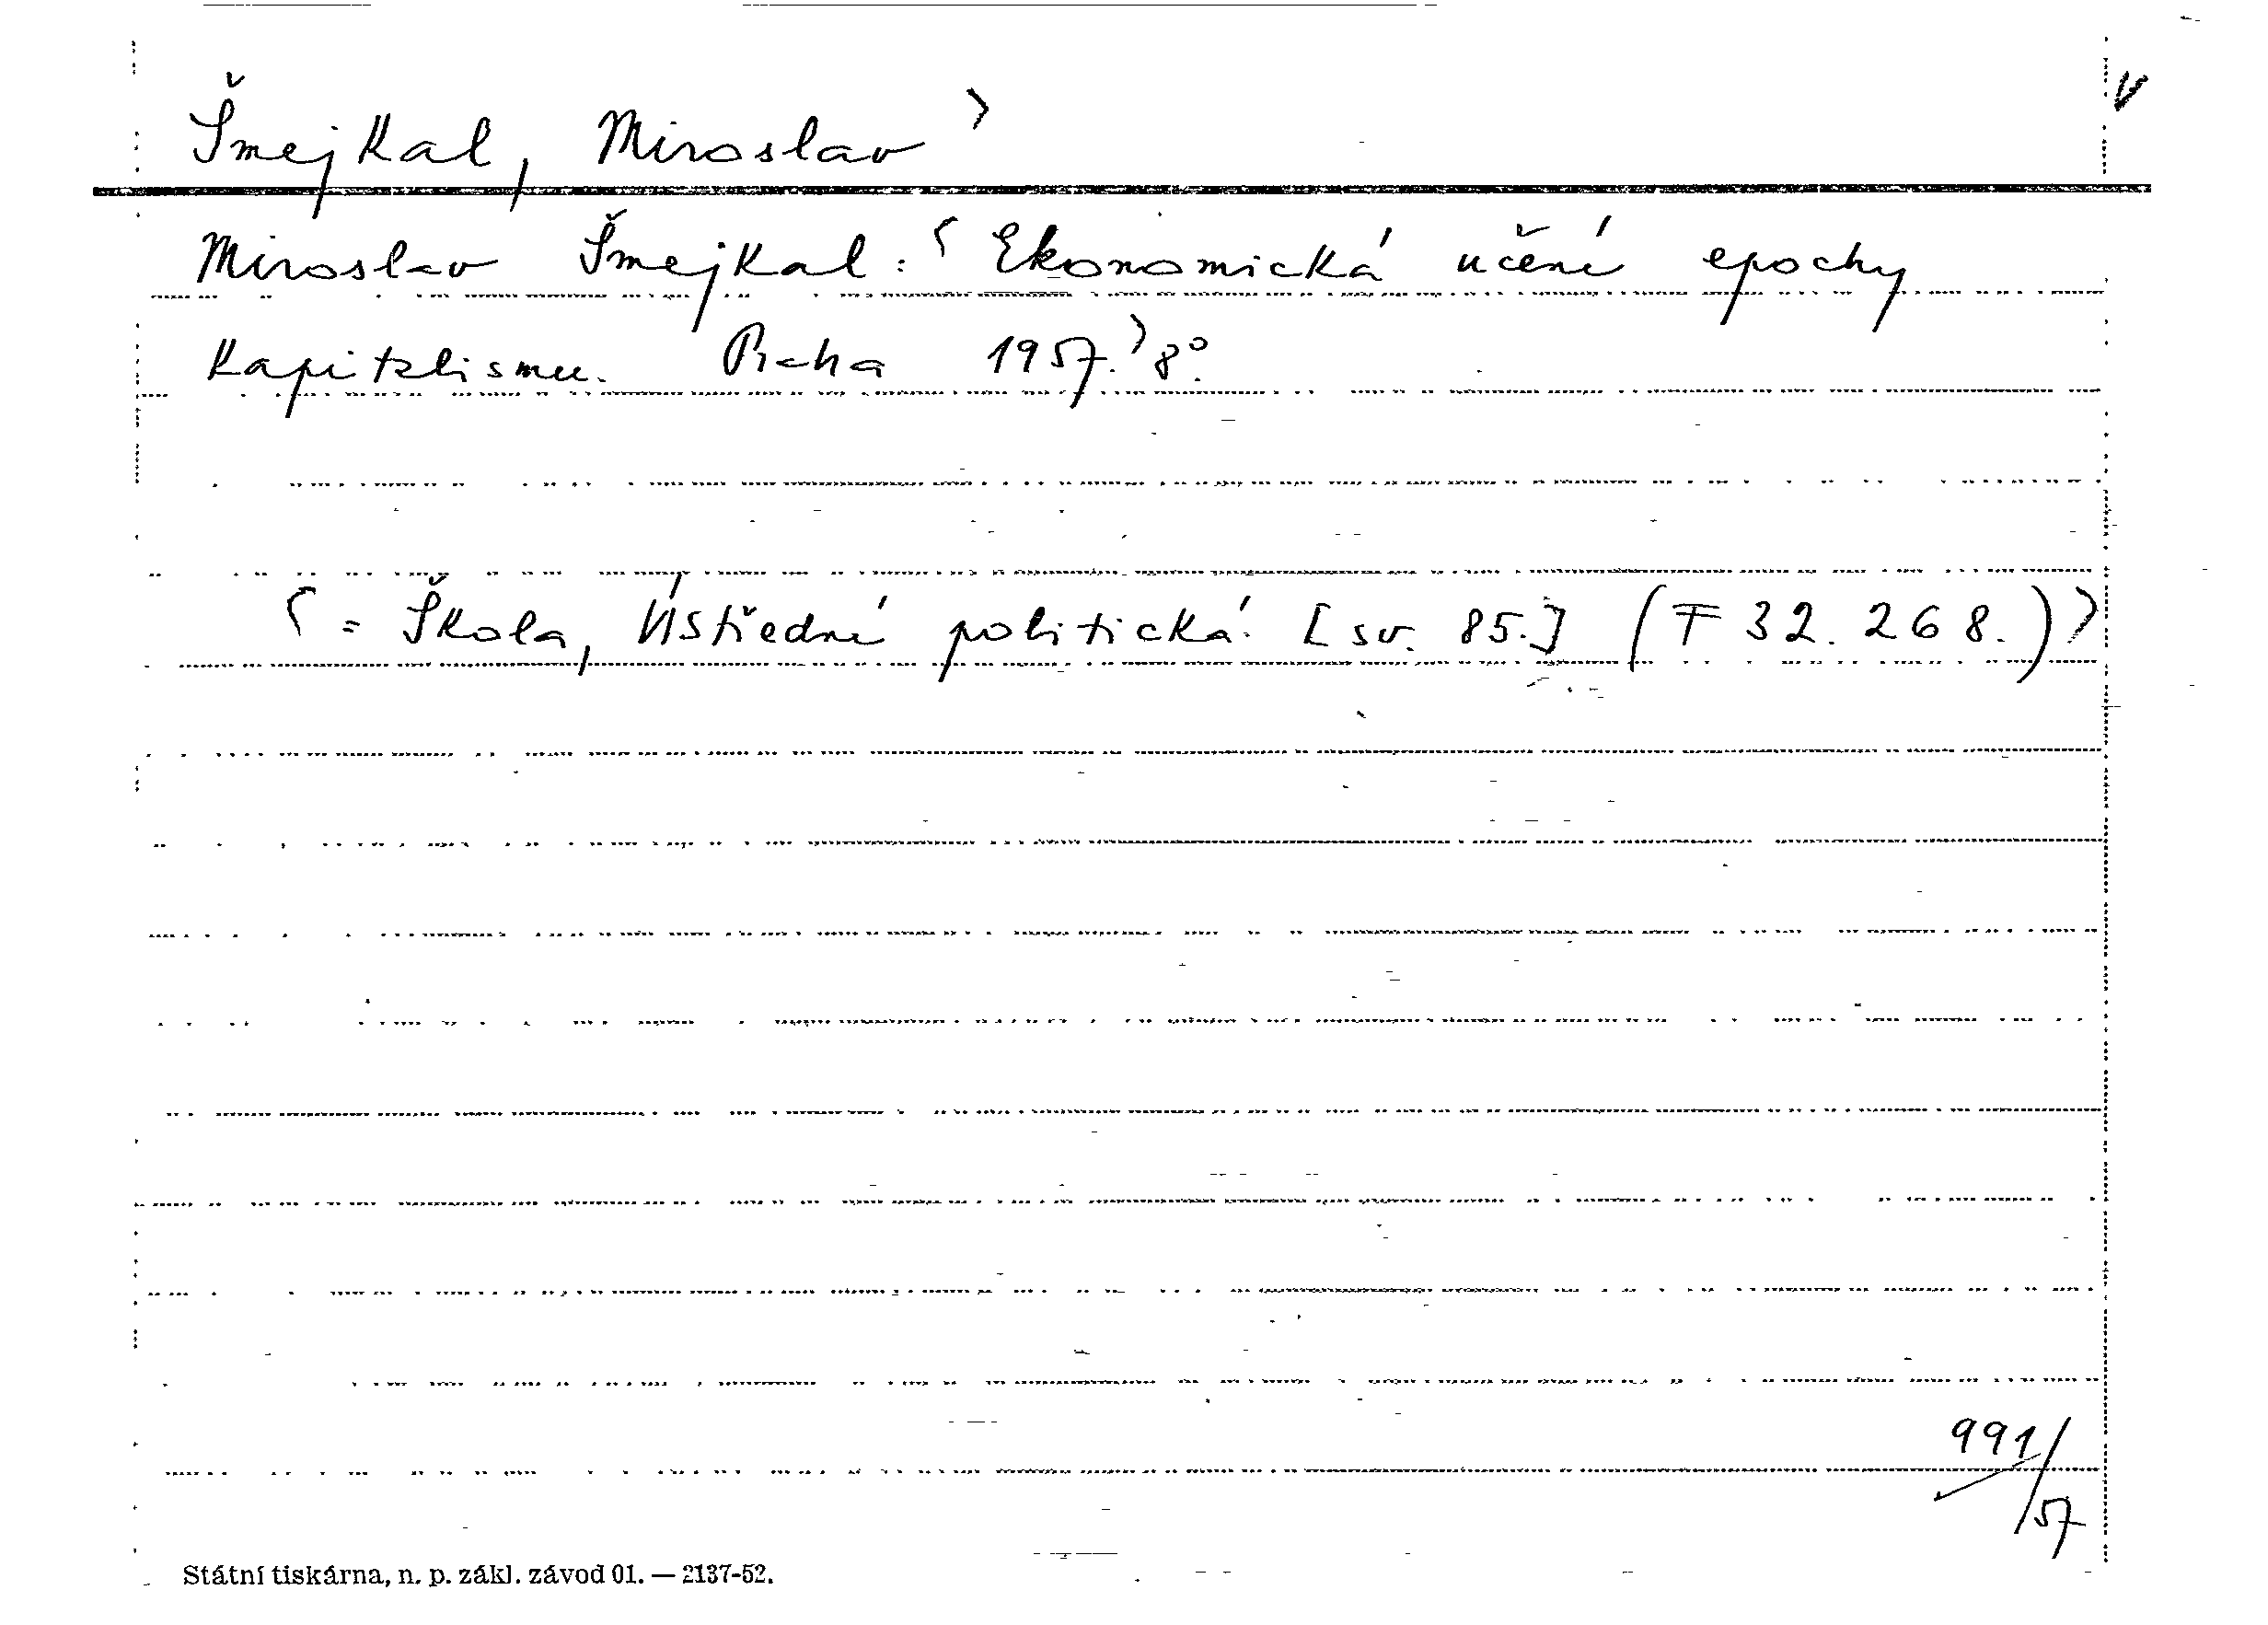 Šmejkal, Miroslav > V
Miroslav Šmejkal: < Ekonomická učení epochy
kapitalismu. Praha 1957. > 8°.
< = Škola, Ústřední politická. [sv. 85.] (F 32.268.) >
991/57
Státní tiskárna, n. p. zákl. závod 01. — 2137-52.